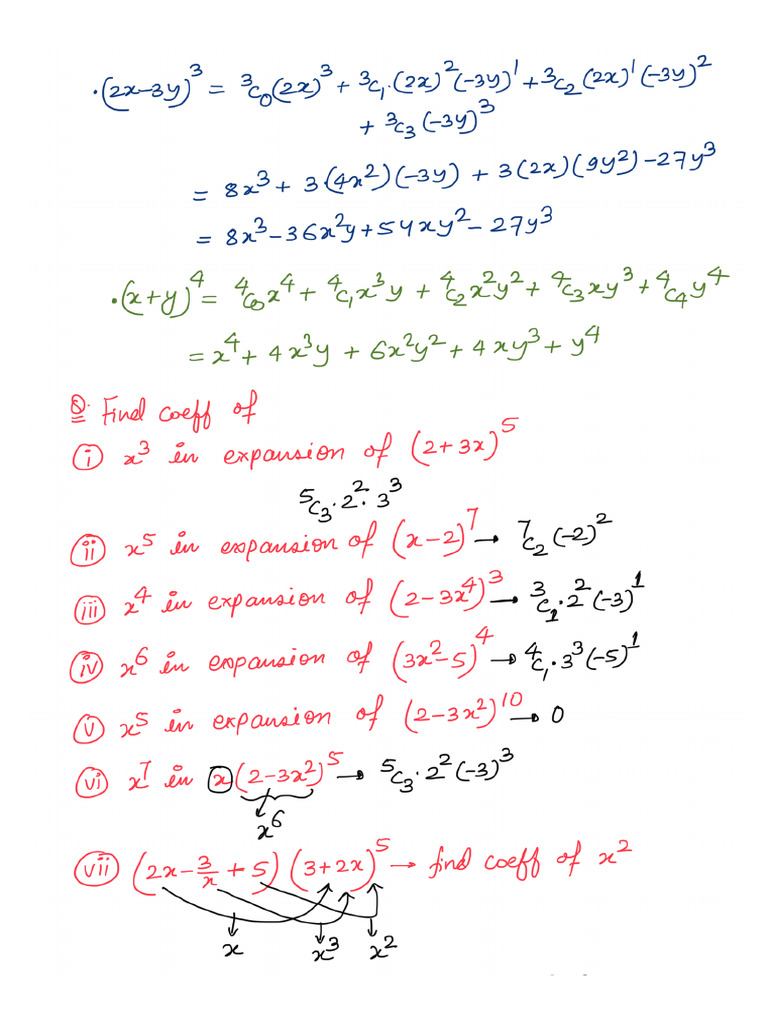 ·(2x-3y)³ = ³C₀(2x)³ + ³C₁·(2x)²(-3y)¹ + ³C₂(2x)¹(-3y)²
+ ³C₃(-3y)³
= 8x³ + 3·(4x²)(-3y) + 3(2x)(9y²) - 27y³
= 8x³ - 36x²y + 54xy² - 27y³
·(x+y)⁴ = ⁴C₀x⁴ + ⁴C₁x³y + ⁴C₂x²y² + ⁴C₃xy³ + ⁴C₄y⁴
= x⁴ + 4x³y + 6x²y² + 4xy³ + y⁴
Q. Find coeff of
(i) x³ in expansion of (2+3x)⁵
⁵C₃·2²·3³
(ii) x⁵ in expansion of (x-2)⁷ → ⁷C₂(-2)²
(iii) x⁴ in expansion of (2-3x⁴)³ → ³C₁·2²(-3)¹
(iv) x⁶ in expansion of (3x²-5)⁴ → ⁴C₁·3³(-5)¹
(v) x⁵ in expansion of (2-3x²)¹⁰ → 0
(vi) x⁷ in x(2-3x²)⁵ → ⁵C₃·2²(-3)³
x⁶
(vii) (2x - 3/x + 5)(3+2x)⁵ → find coeff of x²
x x³ x²